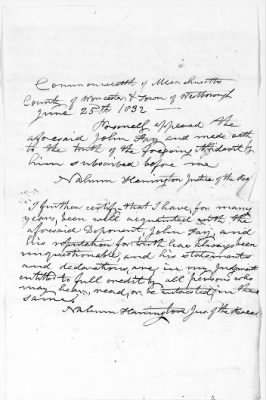 Commonwealth of Massachusetts
County of Worcester & Town of Westborough
June 25th 1832
Personally appeared the
aforesaid John Fay and made oath
to the truth of the foregoing Affidavit by
him subscribed before me
Nahum Harrington Justice of the Peace
I further certify that I have, for many
years, been well acquainted with the
aforesaid Deponent, John Fay, and
his reputation for truth has always been
unquestionable, and his statements
and declarations, are, in my Judgment
entitled to full credit by all persons who
may hear, read, or be interested in the
same.
Nahum Harrington Jus. of the Peace